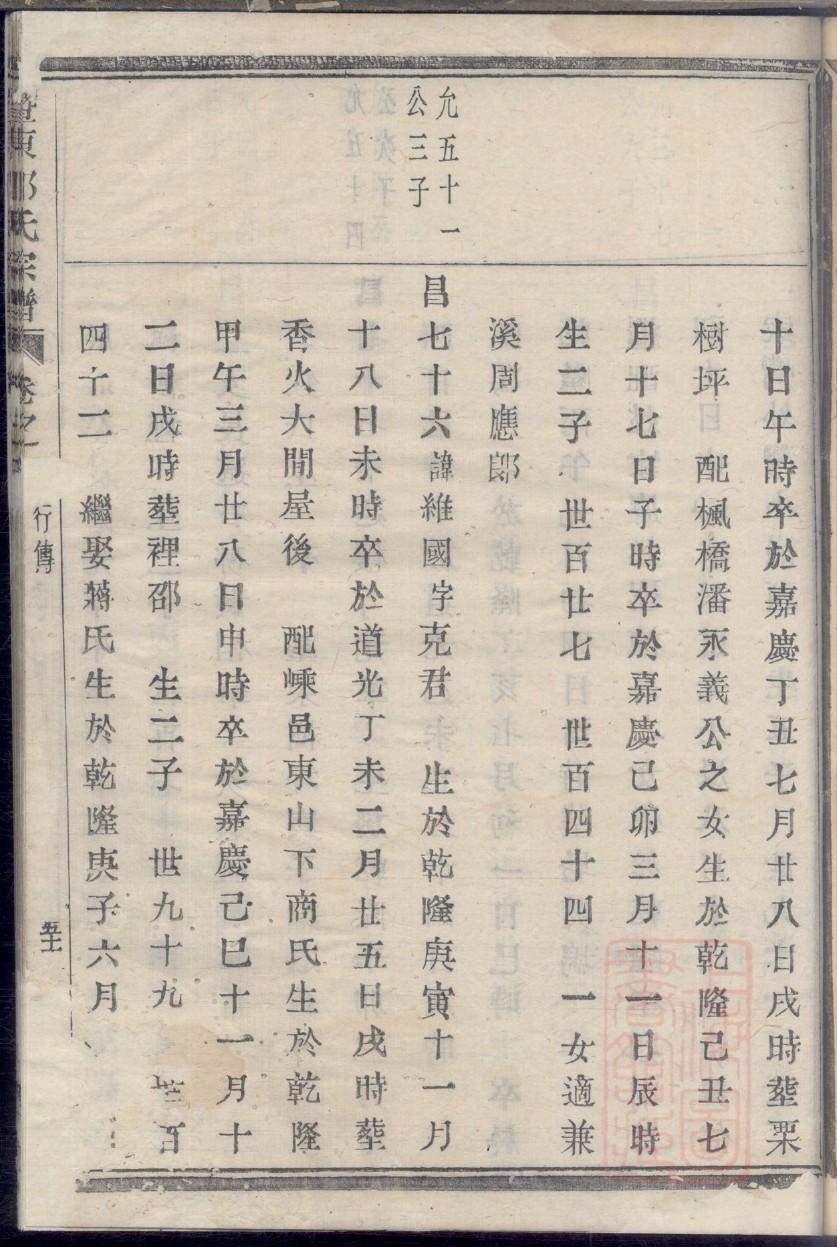 允五十一
公三子
十日午時卒於嘉慶丁丑七月廿八日戌時塟栗
樹坪 配楓橋潘永義公之女生於乾隆己丑七
月十七日子時卒於嘉慶己卯三月十一日辰時
生二子 世百廿七 世百四十四 一女適兼
溪周應郎
昌七十六諱維國字克君 生於乾隆庚寅十一月
十八日未時卒於道光丁未二月廿五日戌時塟
香火大間屋後 配嵊邑東山下商氏生於乾隆
甲午三月廿八日申時卒於嘉慶己巳十一月十
二日戌時塟裡邵 生二子 世九十九 世百
四十二 繼娶蔣氏生於乾隆庚子六月
暨東邵氏宗譜 卷之
行傳